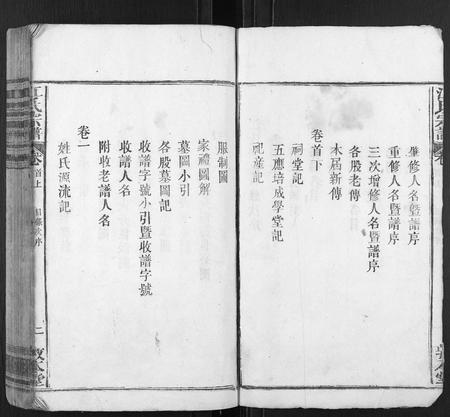 江氏宗譜
肇修人名暨譜序
重修人名暨譜序
三次增修人名暨譜序
各股老傳
本屆新傳
卷首下
祠堂記
五應培成學堂記
祀產記
服制圖
家禮圖解
墓圖小引
各股墓圖記
收譜字號小引暨收譜字號
收譜人名
附收老譜人名
卷一
姓氏源流記
江氏宗譜
卷首上
二
敦本堂